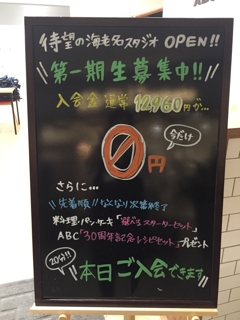 待望の海老名スタジオ OPEN!!
第一期生募集中!!
入会金 通常 12,960円が…
今だけ
0円
さらに…
先着順!! なくなり次第終了
料理・パン・ケーキ「選べるスターターセット」
ABC「30周年記念レシピセット」プレゼント
20分!!
本日ご入会できます